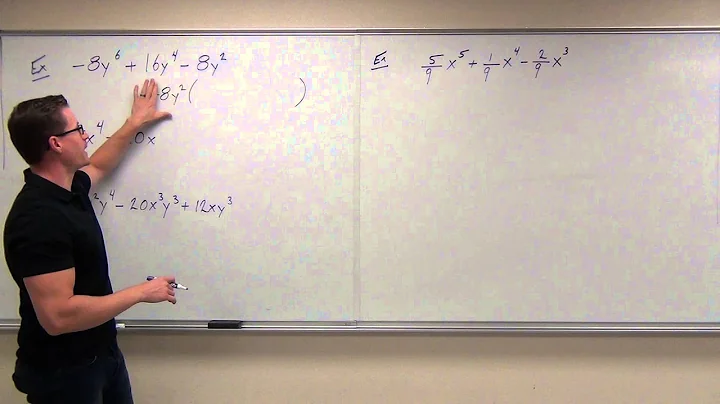 Ex -8y⁶ + 16y⁴ - 8y²
-8y²( )
x⁴ - 0x
²y⁴ - 20x³y³ + 12xy³
Ex 5/9 x⁵ + 1/9 x⁴ - 2/9 x³